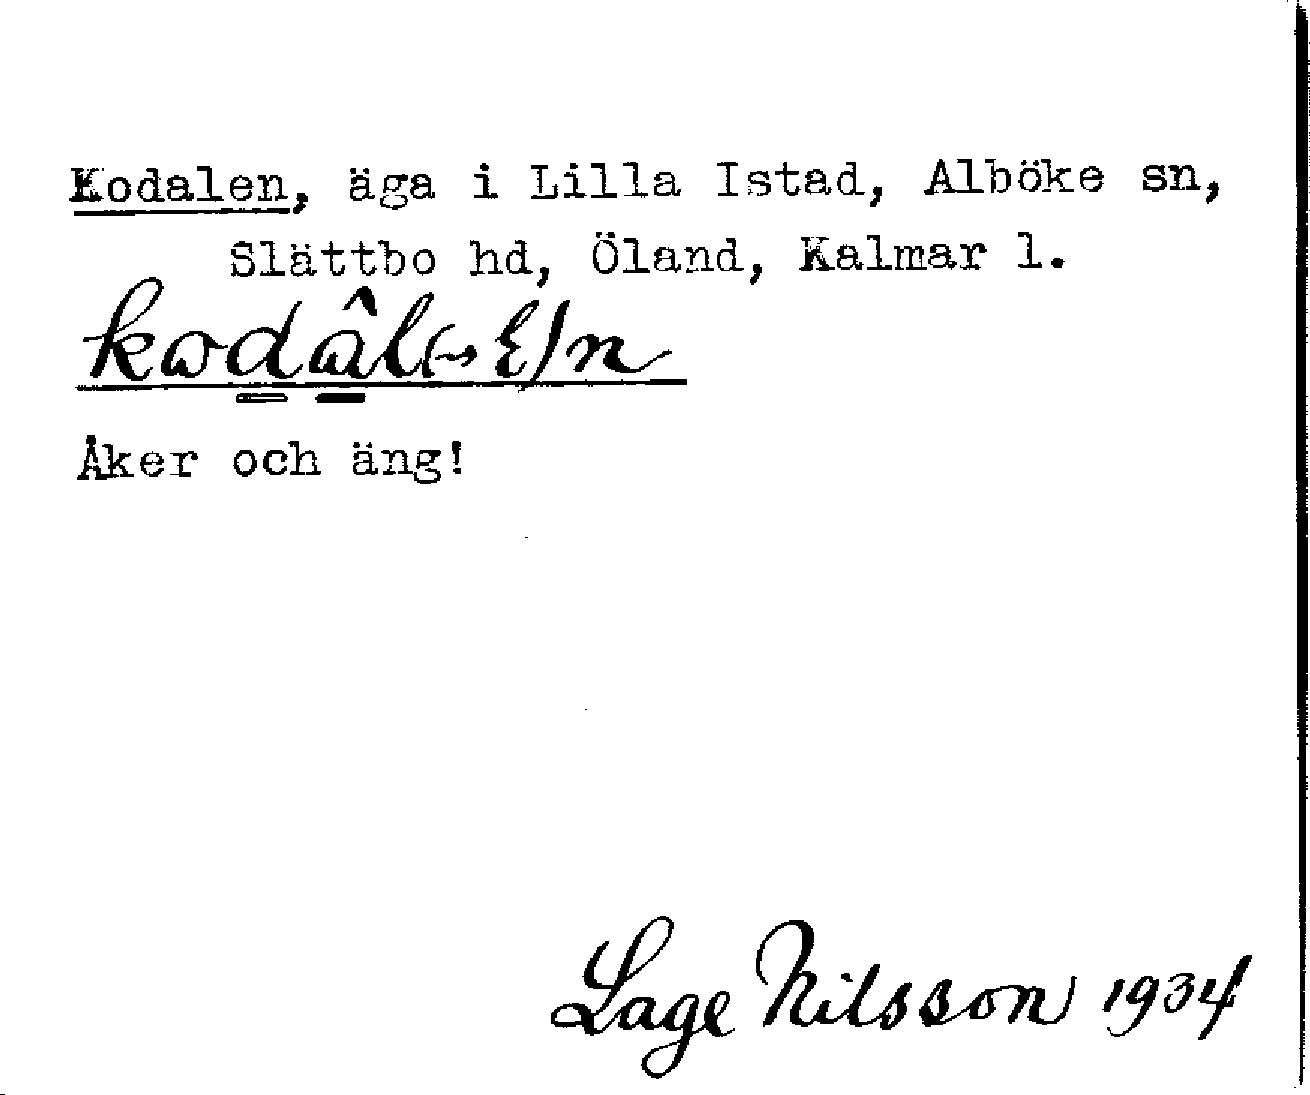 Kodalen, äga i Lilla Istad, Alböke sn,
Slättbo hd, Öland, Kalmar l.
Åker och äng!
Lage Nilsson 1934